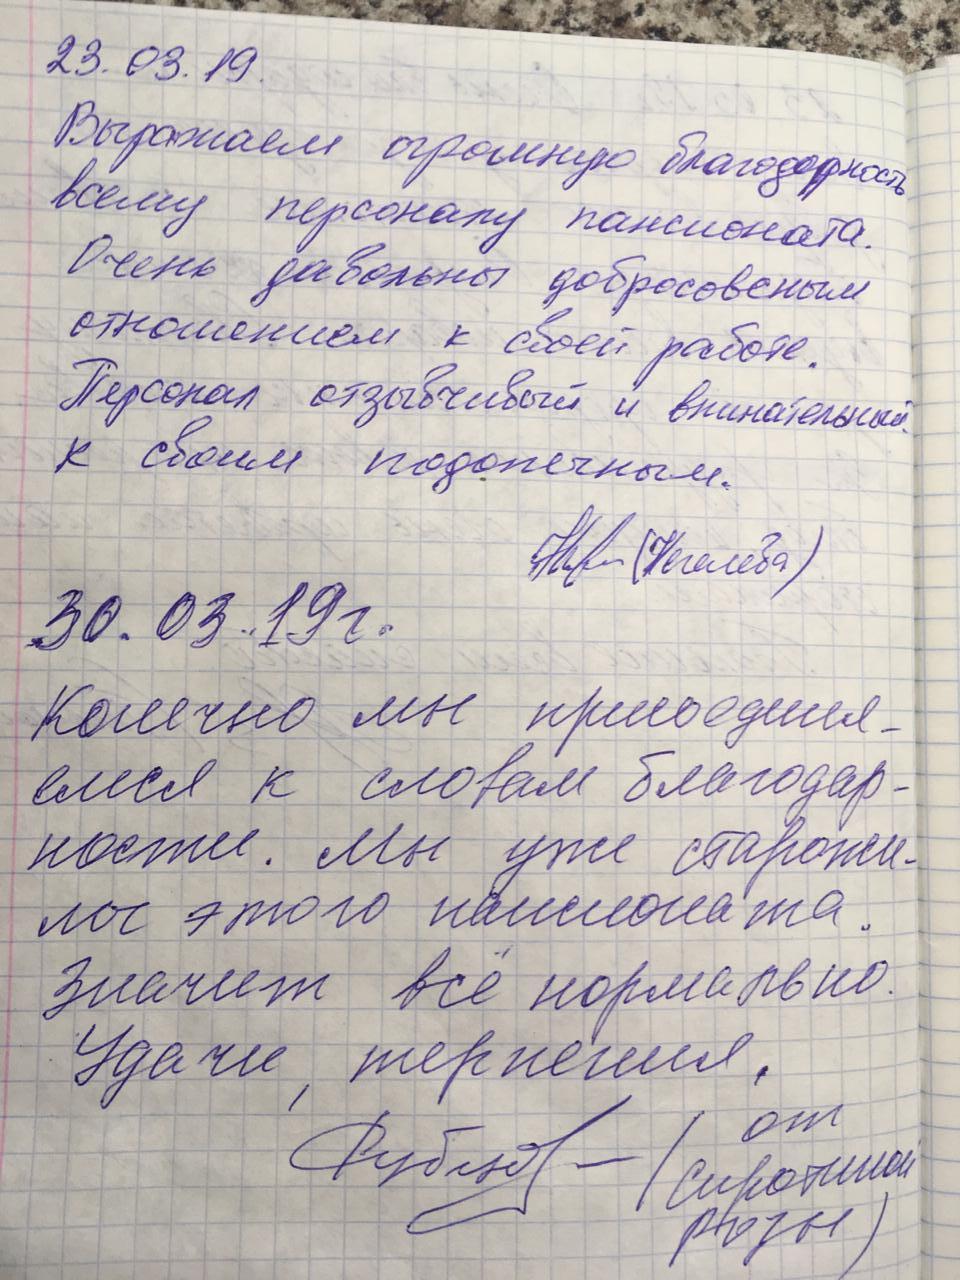 23.03.19.
Выражаем огромную благодарность
всему персоналу пансионата.
Очень давольны добросовесным
отношением к своей работе.
Персонал отзывчивый и внимательный
к своим подопечным.
30.03.19г.
Конечно мы присоединя-
емся к словам благодар-
ности. Мы уже старожи-
лы этого пансионата.
Значит всё нормально.
Удачи, терпения.
(от
Сиротиной
Розы)